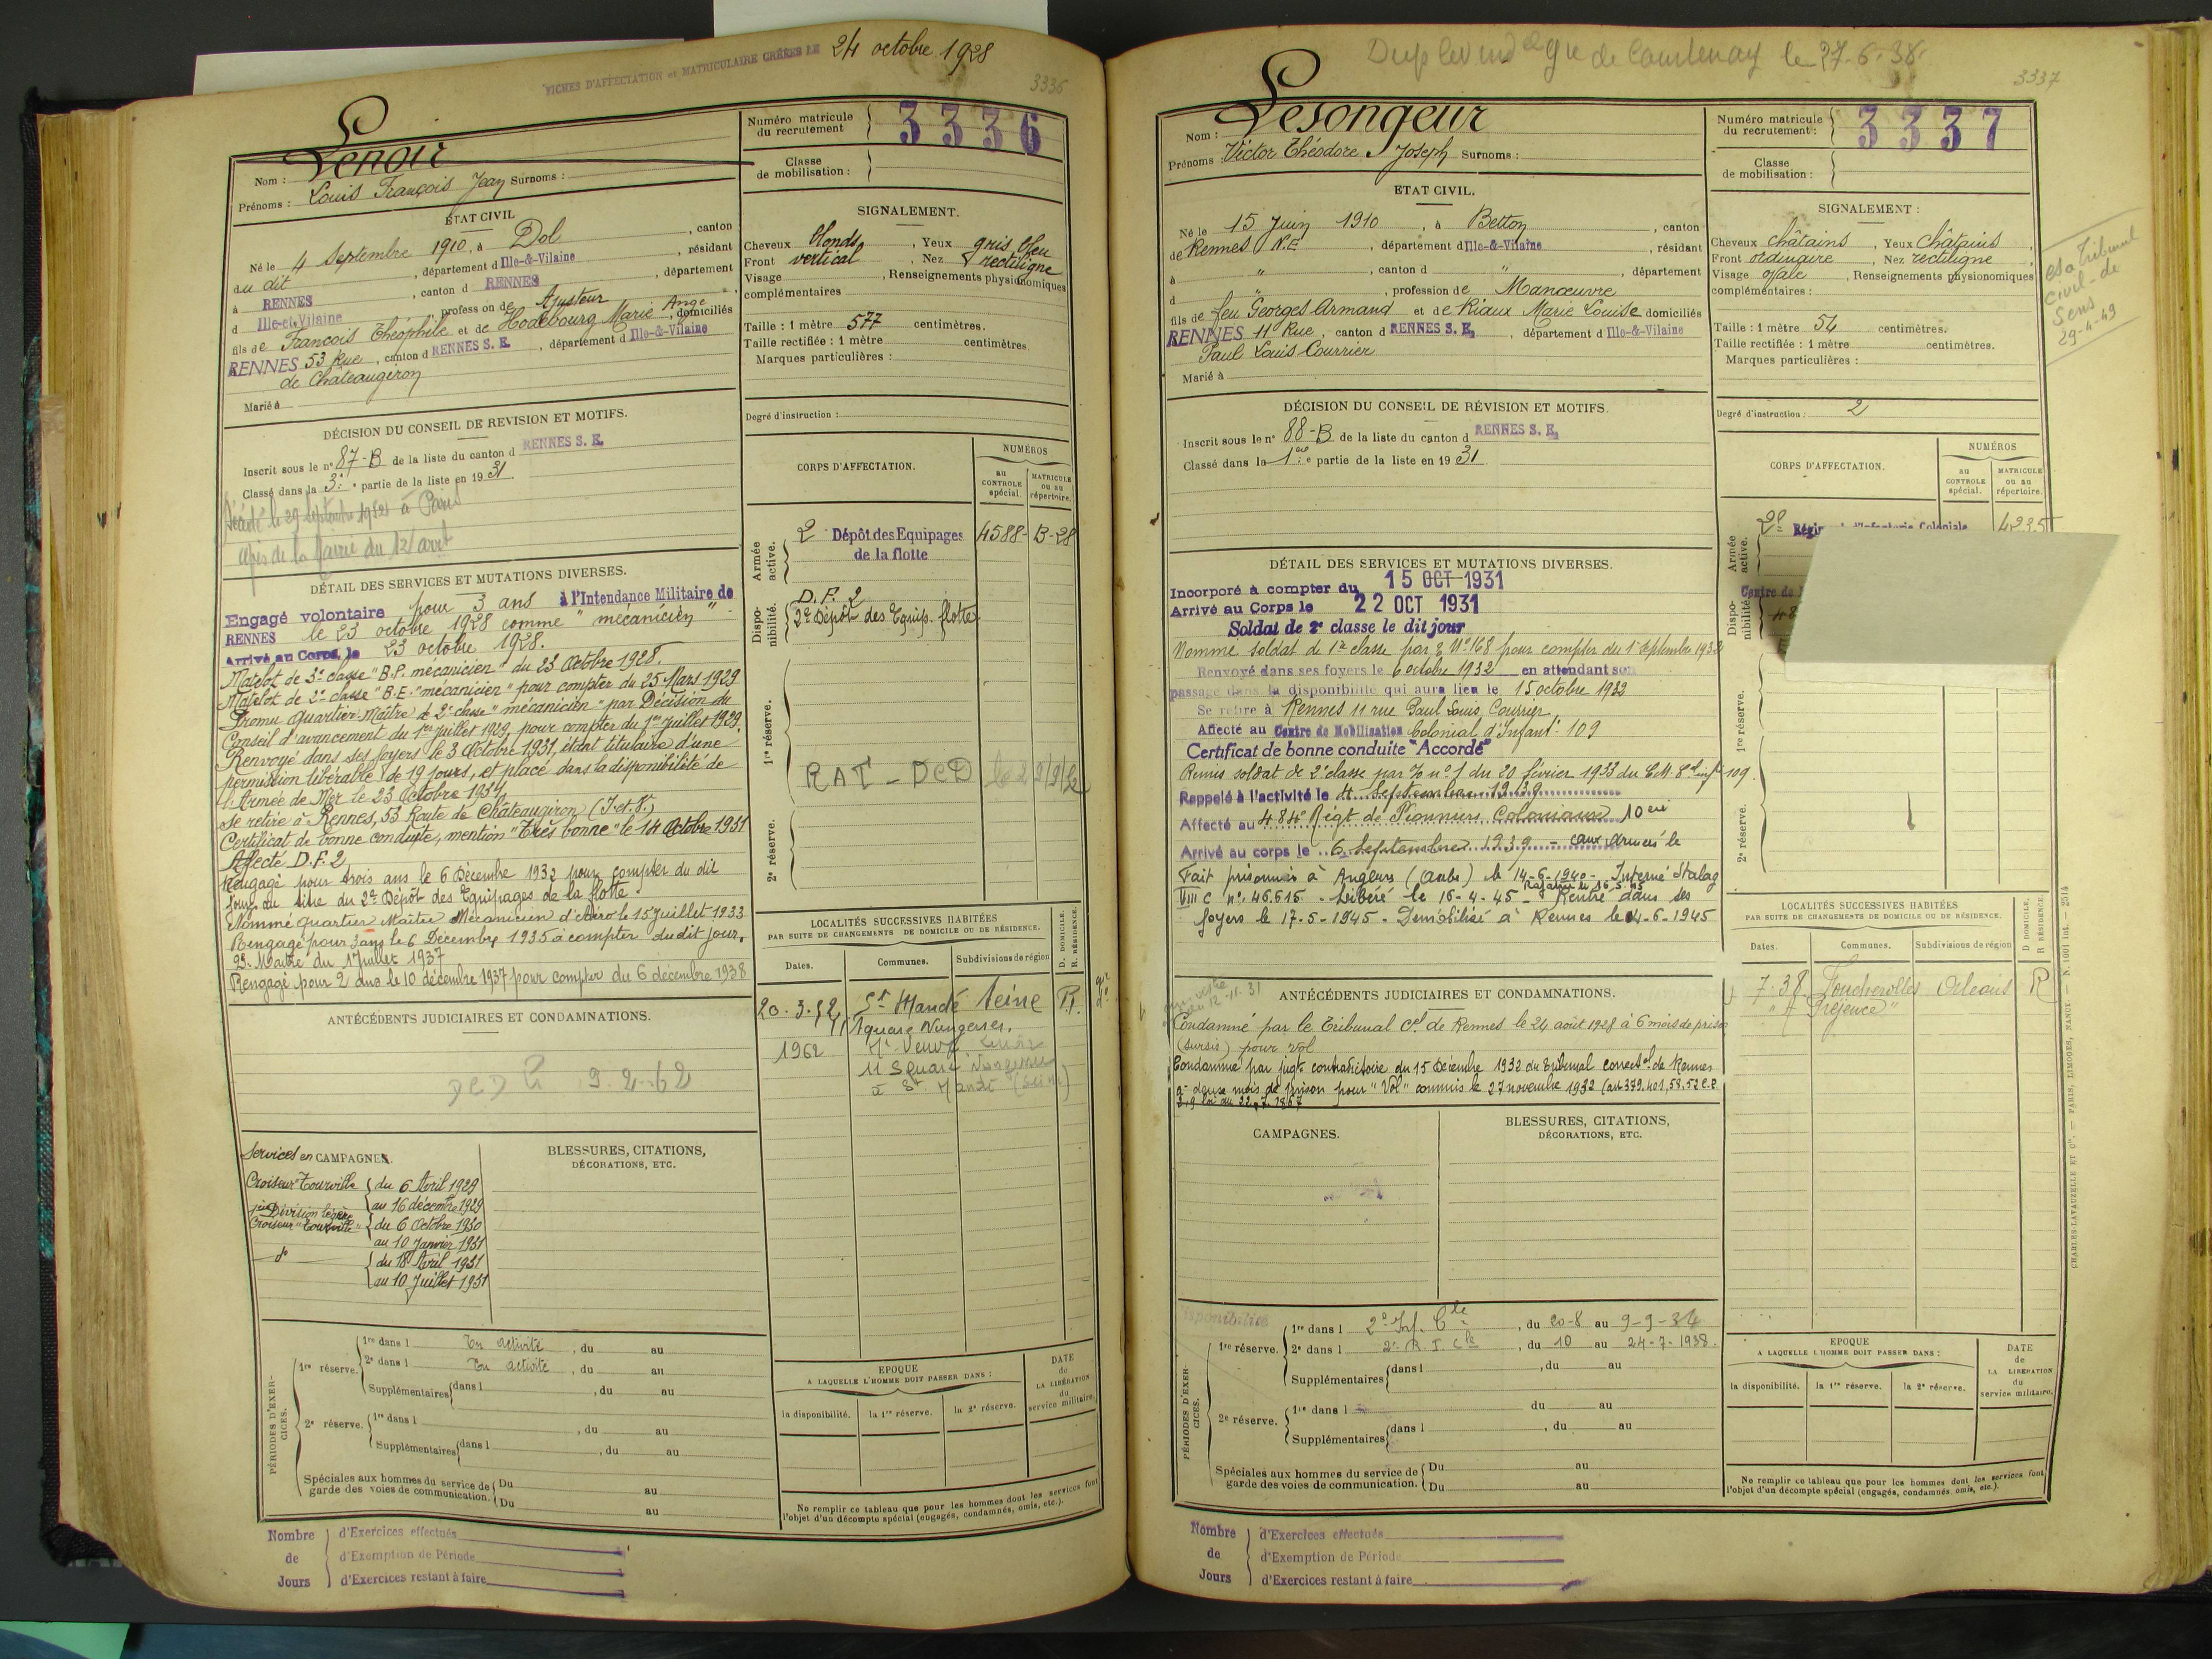 FICHES D'AFFECTATION et MATRICULAIRE CRÉÉES LE 24 octobre 1928
3336
Nom : Lenoir
Prénoms : Louis François Jean Surnoms :
Numéro matricule du recrutement 3336
Classe de mobilisation :
ÉTAT CIVIL
Né le 4 Septembre 1910, à Dol, canton
du dit, département d Ille-&-Vilaine, résidant
à RENNES, canton d RENNES, département
d Ille-et-Vilaine, profession de Ajusteur
fils de François Théophile et de Hodebourg Marie Ange, domiciliés
RENNES 53 Rue, canton d RENNES S. E., département d Ille-&-Vilaine
de Châteaugiron
Marié à
SIGNALEMENT.
Cheveux blonds, Yeux gris bleu
Front vertical, Nez rectiligne
Visage, Renseignements physionomiques
complémentaires
Taille : 1 mètre 577 centimètres.
Taille rectifiée : 1 mètre centimètres.
Marques particulières :
Degré d'instruction :
DÉCISION DU CONSEIL DE REVISION ET MOTIFS.
Inscrit sous le n° 87-B de la liste du canton d RENNES S. E.
Classé dans la 3e partie de la liste en 1931
Décédé le 29 septembre 1962 à Paris
avis de la Mairie du 12 arrt
DÉTAIL DES SERVICES ET MUTATIONS DIVERSES.
Engagé volontaire pour 3 ans à l'Intendance Militaire de
RENNES le 23 octobre 1928 comme "mécanicien"
Arrivé au Corps le 23 octobre 1928.
Matelot de 3e classe "B.P. mécanicien" du 23 Octobre 1928.
Matelot de 2e classe "B.E. "mécanicien" pour compter du 25 Mars 1929
Promu Quartier-Maître de 2e classe "mécanicien" par Décision du
Conseil d'avancement du 1er juillet 1929, pour compter du 1er Juillet 1929.
Renvoyé dans ses foyers le 3 Octobre 1931, étant titulaire d'une
permission libérable de 19 jours, et placé dans la disponibilité de
l'Armée de Mer le 23 Octobre 1931
se retire à Rennes, 53 Route de Châteaugiron (I-et-V.)
Certificat de bonne conduite, mention "Très bonne" le 14 Octobre 1931
Affecté D.F. 2
Rengagé pour trois ans le 6 Décembre 1932 pour compter du dit
jour au titre du 2e Dépôt des Equipages de la flotte.
Nommé quartier Maître Mécanicien d'Aéro le 15 juillet 1933
Rengagé pour 3 ans le 6 Décembre 1935 à compter du dit jour.
2d-Maître du 1 Juillet 1937
Rengagé pour 2 ans le 10 décembre 1937 pour compter du 6 décembre 1938
CORPS D'AFFECTATION.
NUMÉROS
au CONTROLE spécial.
MATRICULE ou au répertoire.
Armée active.
2 Dépôt des Equipages de la flotte 4588- B-28
Disponibilité.
D.F. 2
2e Dépôt des Equip. flotte
1re réserve.
RAT - DCD le 29/9/62
2e réserve.
ANTÉCÉDENTS JUDICIAIRES ET CONDAMNATIONS.
LOCALITÉS SUCCESSIVES HABITÉES
PAR SUITE DE CHANGEMENTS DE DOMICILE OU DE RÉSIDENCE.
Dates. Communes. Subdivisions de région D. DOMICILE. R. RÉSIDENCE.
20.3.52 St Mandé Seine
11 Square Nungesser.
1962 Me Veuve Lenoir
11 Square Nungesser
à St Mandé (Seine)
Services en CAMPAGNES.
BLESSURES, CITATIONS, DÉCORATIONS, ETC.
Croiseur "Tourville" du 6 Avril 1929
au 16 décembre 1929
1ère Division légère
Croiseur "Tourville" du 6 Octobre 1930
au 10 Janvier 1931
do du 18 Avril 1931
au 10 Juillet 1931
PÉRIODES D'EXERCICES.
1re réserve. 1re dans l En activité, du au
2e dans l En activité, du au
Supplémentaires dans l, du au
2e réserve. 1re dans l, du au
Supplémentaires dans l, du au
Spéciales aux hommes du service de garde des voies de communication. Du au
Du au
EPOQUE A LAQUELLE L'HOMME DOIT PASSER DANS :
la disponibilité. la 1re réserve. la 2e réserve.
DATE de LA LIBÉRATION du service militaire.
Ne remplir ce tableau que pour les hommes dont les services font
l'objet d'un décompte spécial (engagés, condamnés, omis, etc.).
Nombre de Jours
d'Exercices effectués
d'Exemption de Période
d'Exercices restant à faire
de Courtenay le 27-6-38
3337
Nom : Lesongeur
Prénoms : Victor Théodore Joseph Surnoms :
Numéro matricule du recrutement : 3337
Classe de mobilisation :
ETAT CIVIL.
Né le 15 Juin 1910, à Betton, canton
de Rennes N.E, département d Ille-&-Vilaine, résidant
à ", canton d ", département
d ", profession de Manœuvre
fils de feu Georges Armand et de Riaux Marie Louise domiciliés
RENNES 11 Rue, canton d RENNES S. E., département d Ille-&-Vilaine
Paul Louis Courrier
Marié à
SIGNALEMENT :
Cheveux châtains, Yeux châtains
Front ordinaire, Nez rectiligne
Visage ovale, Renseignements physionomiques
complémentaires :
Taille : 1 mètre 54 centimètres.
Taille rectifiée : 1 mètre centimètres.
Marques particulières :
Degré d'instruction : 2
Tribunal
civil de
Sens
29-4-49
DÉCISION DU CONSEIL DE RÉVISION ET MOTIFS.
Inscrit sous le n° 88-B de la liste du canton d RENNES S. E.
Classé dans la 1ère partie de la liste en 1931
DÉTAIL DES SERVICES ET MUTATIONS DIVERSES.
Incorporé à compter du 15 OCT 1931
Arrivé au Corps le 22 OCT 1931
Soldat de 2e classe le dit jour
Nommé soldat de 1re classe par N°168 pour compter du 1er Septembre 1932
Renvoyé dans ses foyers le 6 octobre 1932 en attendant son
passage dans la disponibilité qui aura lieu le 15 octobre 1932
Se retire à Rennes 11 rue Paul Louis Courrier
Affecté au Centre de Mobilisation Colonial d'Infant. 109
Certificat de bonne conduite "Accordé"
Remis soldat de 2e classe par n° 1 du 20 février 1933 du C.M. 109.
Rappelé à l'activité le 4 Septembre 1939
Affecté au 484e Régt de Pionniers Coloniaux 10 cie
Arrivé au corps le 6 Septembre 1939 - aux Armées le
Fait prisonnier à Angers (Aube) le 14-6-1940 - Interné Stalag
VIII C n° 46.615. - Libéré le 16-4-45 - Rapatrié le 16.5.45 Rentré dans ses
foyers le 17-5-1945 - Démobilisé à Rennes le 4-6-1945
CORPS D'AFFECTATION.
NUMÉROS
au CONTROLE spécial.
MATRICULE ou au répertoire.
Armée active.
2e d'Infanterie Coloniale 4235
Disponibilité
Centre de
1re réserve.
2e réserve.
ANTÉCÉDENTS JUDICIAIRES ET CONDAMNATIONS.
Condamné par le Tribunal Cel de Rennes le 24 août 1928 à 6 mois de prison
(sursis) pour vol
Condamné par jugt contradictoire du 15 Décembre 1932 du Tribunal correctel de Rennes
à deux mois de prison pour "Vol" commis le 27 novembre 1932 (art. 379.401,58.52 C.P.
3,9 loi du 22.7.1867
LOCALITÉS SUCCESSIVES HABITÉES
PAR SUITE DE CHANGEMENTS DE DOMICILE OU DE RÉSIDENCE.
Dates. Communes. Subdivisions de région D DOMICILE. R RÉSIDENCE
7-38 Foucherolles Orléans R
CAMPAGNES.
BLESSURES, CITATIONS, DÉCORATIONS, ETC.
Disponibilité
PÉRIODES D'EXERCICES.
1re réserve. 1re dans l 2e Inf. Cle, du 20-8 au 9-9-34
2e dans l 2e R.I.Cle, du 10 au 24-7-1938.
Supplémentaires dans l, du au
2e réserve. 1re dans l du au
Supplémentaires dans l, du au
Spéciales aux hommes du service de garde des voies de communication. Du au
Du au
EPOQUE A LAQUELLE L'HOMME DOIT PASSER DANS :
la disponibilité. la 1re réserve. la 2e réserve.
DATE de LA LIBÉRATION du service militaire.
Ne remplir ce tableau que pour les hommes dont les services font
l'objet d'un décompte spécial (engagés, condamnés, omis, etc.).
CHARLES-LAVAUZELLE ET Cie. — PARIS, LIMOGES, NANCY. — N. 1001 int. — 2314
Nombre de Jours
d'Exercices effectués
d'Exemption de Période
d'Exercices restant à faire